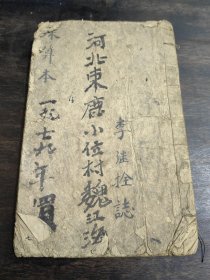 李崖拴誌
河北東鹿小位村魏江海
本 一九七九年買